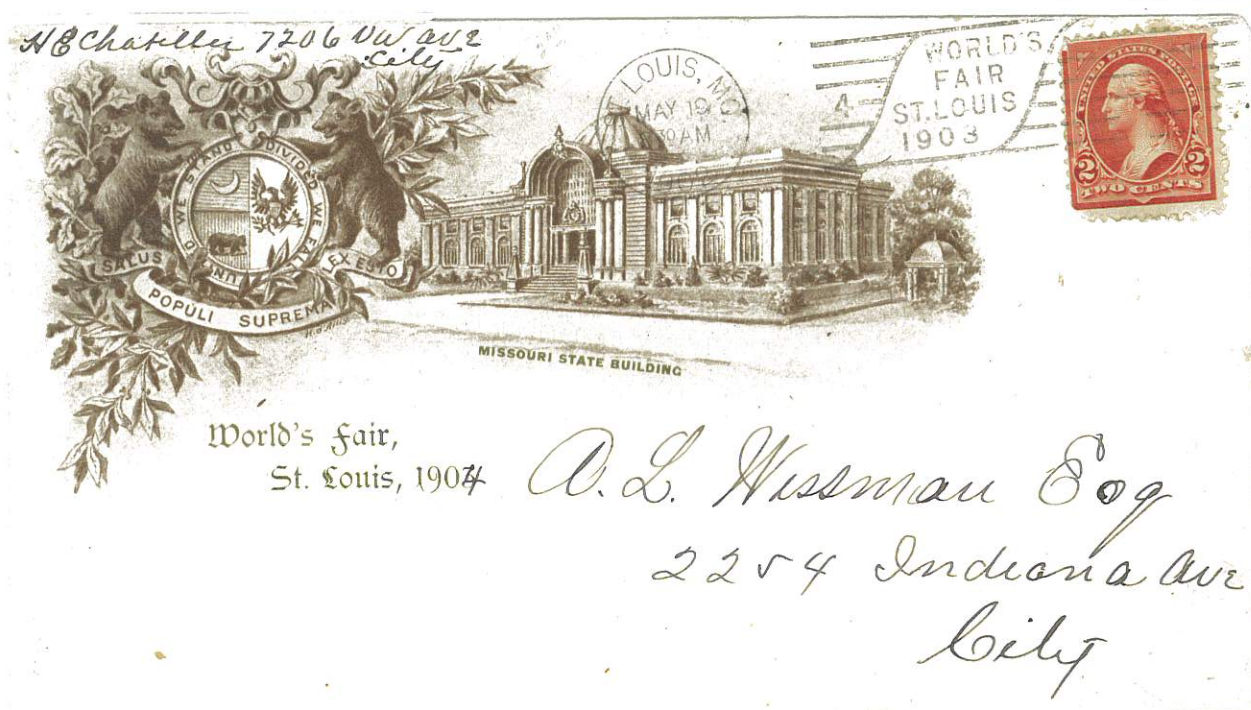 H E Chatillon 7206 Vw ave
City
ST. LOUIS, MO.
MAY 19
AM
4
WORLD'S
FAIR
ST. LOUIS
1903
UNITED STATES POSTAGE
2 2
TWO CENTS
UNITED WE STAND DIVIDED WE FALL
SALUS POPULI SUPREMA LEX ESTO
MISSOURI STATE BUILDING
World's Fair,
St. Louis, 1904
A. L. Wissman Esq
2254 Indiana Ave
City